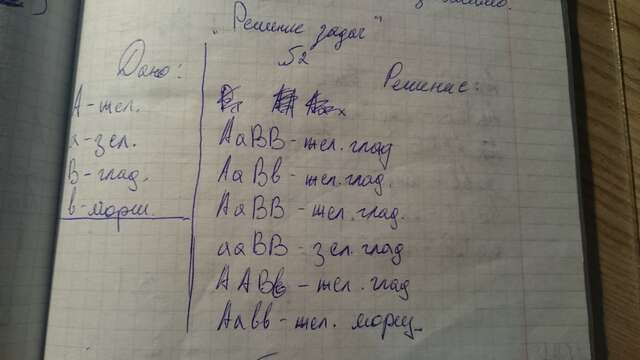 „Решение задач"
№2
Дано:
Решение:
А-жел.
а-зел.
В-глад.
в-морщ.
АаВВ-жел.глад
АаВв-жел.глад.
АаВВ-жел.глад.
ааВВ-зел.глад
ААВв-жел.глад
Аавв-жел. морщ